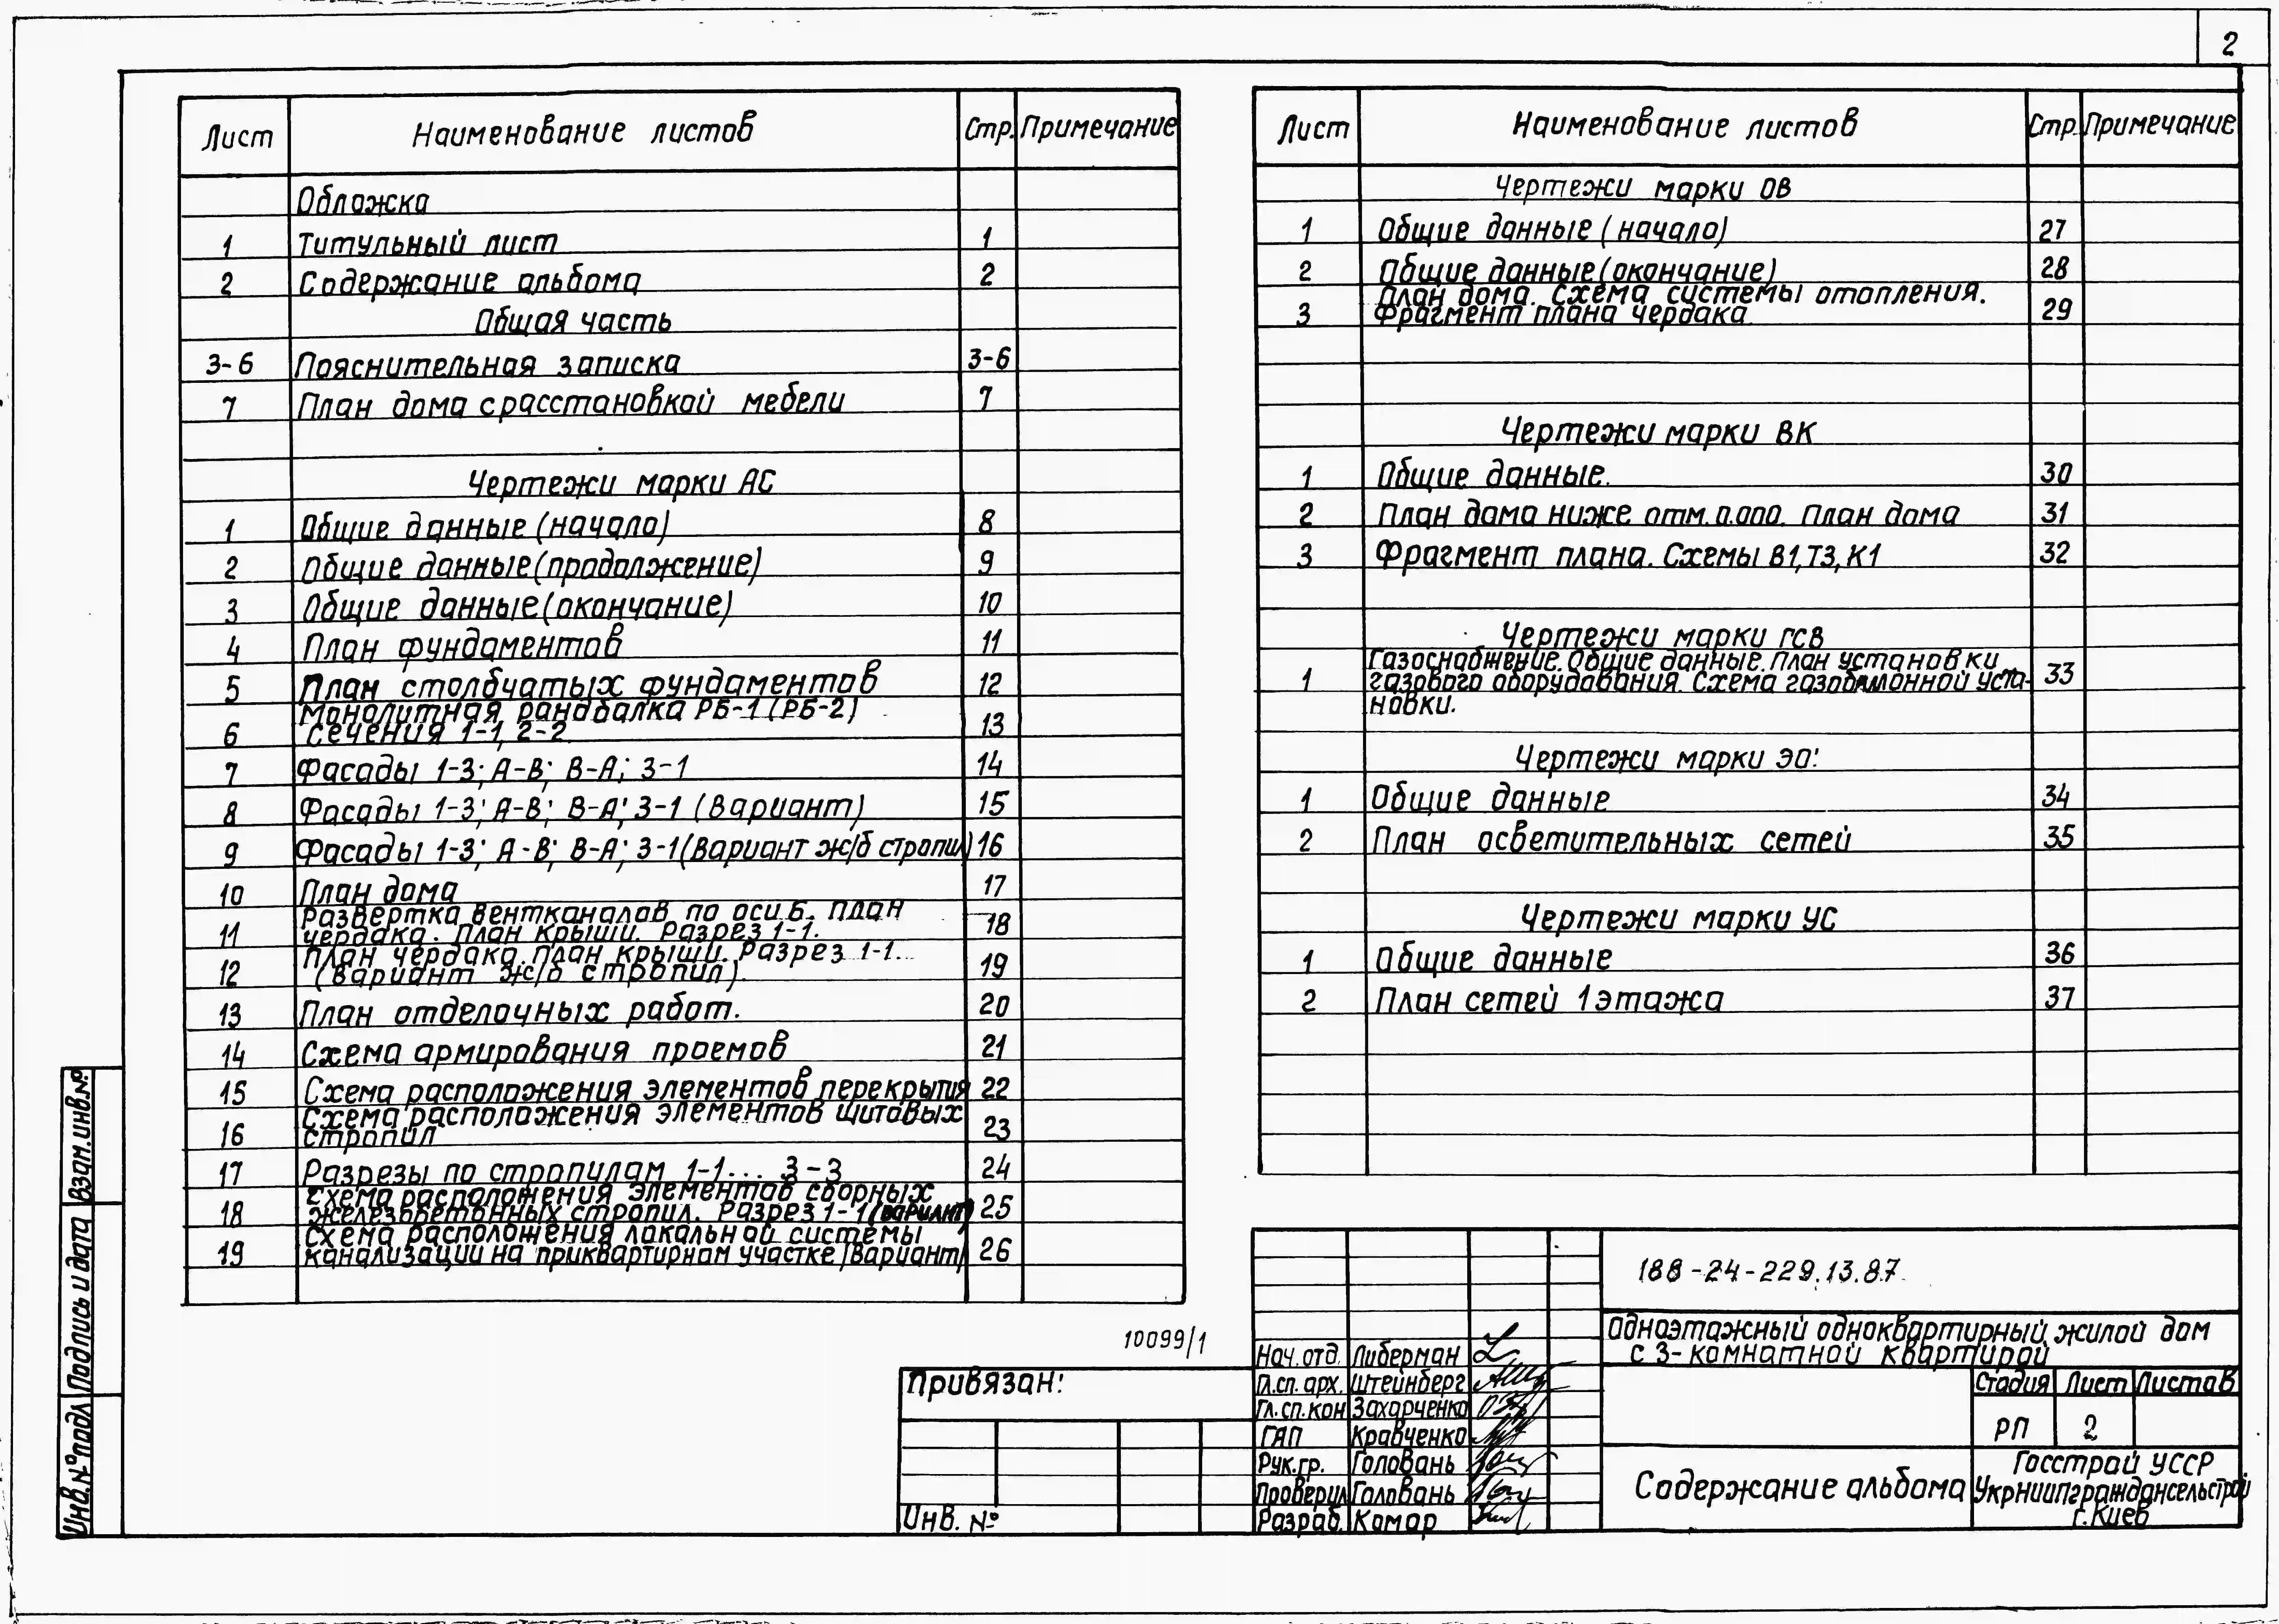 2
Лист Наименование листов Стр. Примечание
Обложка
1 Титульный лист 1
2 Содержание альбома 2
Общая часть
3-6 Пояснительная записка 3-6
7 План дома с расстановкой мебели 7
Чертежи марки АС
1 Общие данные (начало) 8
2 Общие данные (продолжение) 9
3 Общие данные (окончание) 10
4 План фундаментов 11
5 План столбчатых фундаментов 12
Монолитная рандбалка РБ-1 (РБ-2)
6 сечения 1-1, 2-2 13
7 Фасады 1-3; А-В; В-А; 3-1 14
8 Фасады 1-3; А-В; В-А; 3-1 (Вариант) 15
9 Фасады 1-3; А-В; В-А; 3-1 (Вариант ж/б стропил) 16
10 План дома 17
Развертка вентканалов по оси Б. План
11 чердака. План крыши. Разрез 1-1. 18
План чердака. План крыши. Разрез 1-1.
12 (Вариант ж/б стропил) 19
13 План отделочных работ. 20
14 Схема армирования проемов 21
15 Схема расположения элементов перекрытия 22
Схема расположения элементов щитовых
16 стропил 23
17 Разрезы по стропилам 1-1... 3-3 24
Схема расположения элементов сборных
18 железобетонных стропил. Разрез 1-1 (вариант) 25
Схема расположения локальной системы
19 канализации на приквартирном участке (Вариант) 26
Лист Наименование листов Стр. Примечание
Чертежи марки ОВ
1 Общие данные (начало) 27
2 Общие данные (окончание) 28
План дома. Схема системы отопления.
3 Фрагмент плана чердака. 29
Чертежи марки ВК
1 Общие данные. 30
2 План дома ниже отм. 0.000. План дома 31
3 Фрагмент плана. Схемы В1, Т3, К1 32
Чертежи марки ГСВ
Газоснабжение. Общие данные. План установки
1 газового оборудования. Схема газобаллонной уста- 33
новки.
Чертежи марки ЭО:
1 Общие данные 34
2 План осветительных сетей 35
Чертежи марки УС
1 Общие данные 36
2 План сетей 1 этажа 37
Взам. инв. №
Подпись и дата
Инв. № подл
10099/1
Привязан:
Инв. №
Нач. отд. Либерман
Гл. сп. арх. Штейнберг
Гл. сп. кон Захарченко
ГАП Кравченко
Рук. гр. Головань
Проверил Головань
Разраб. Комар
188-24-229.13.87
Одноэтажный одноквартирный жилой дом
с 3-комнатной квартирой
Стадия Лист Листов
РП 2
Содержание альбома
Госстрой УССР
УкрНИИПграждансельстрой
г. Киев